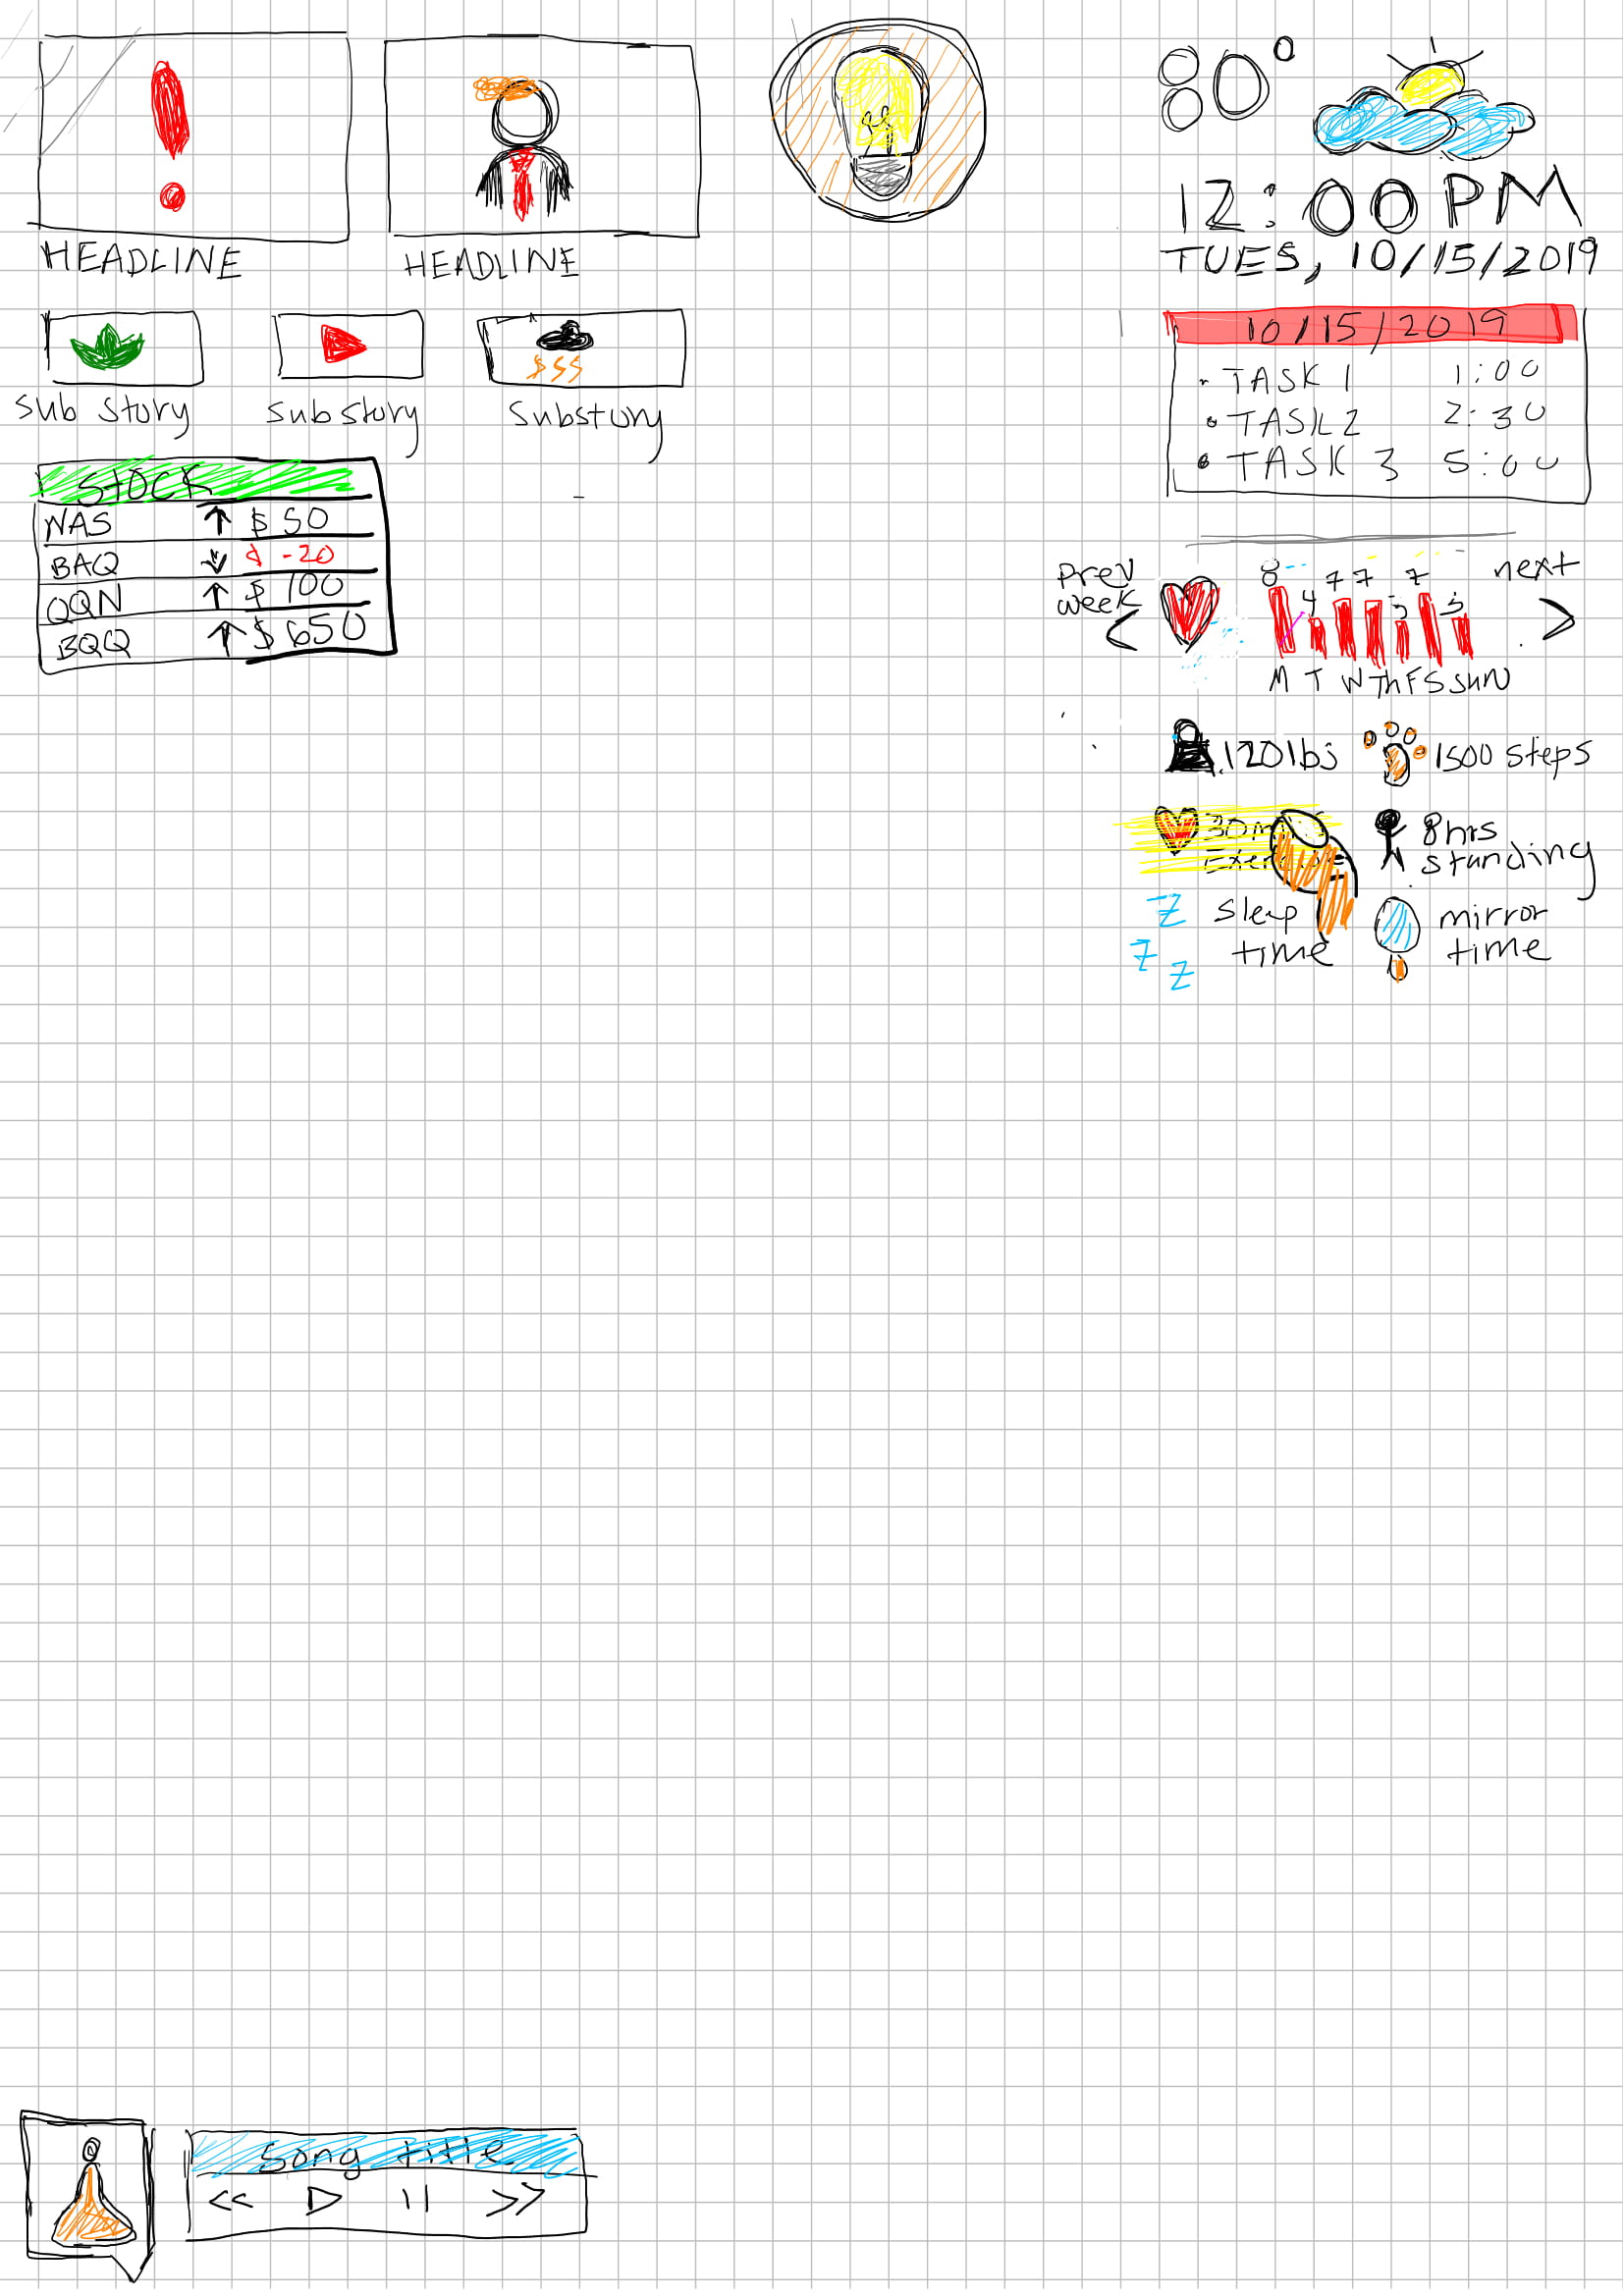 HEADLINE
HEADLINE
sub story
substory
substory
$$$
STOCK
WAS ↑ $ 50
BAQ ↓ $ -20
QQN ↑ $ 100
BQQ ↑ $ 650
80°
12:00PM
TUES, 10/15/2019
10/15/2019
• TASK 1 1:00
• TASK 2 2:30
• TASK 3 5:00
prev
week
<
8 4 7 7 3 7 3
M T W Th F S SUN
next
>
120 lbs
1500 steps
30
8hrs
standing
Z Z Z
sleep
time
mirror
time
song title
<< ▷ || >>